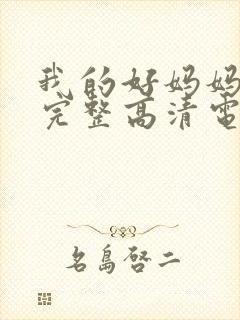 我的好妈妈
完整高清电
名島啓二